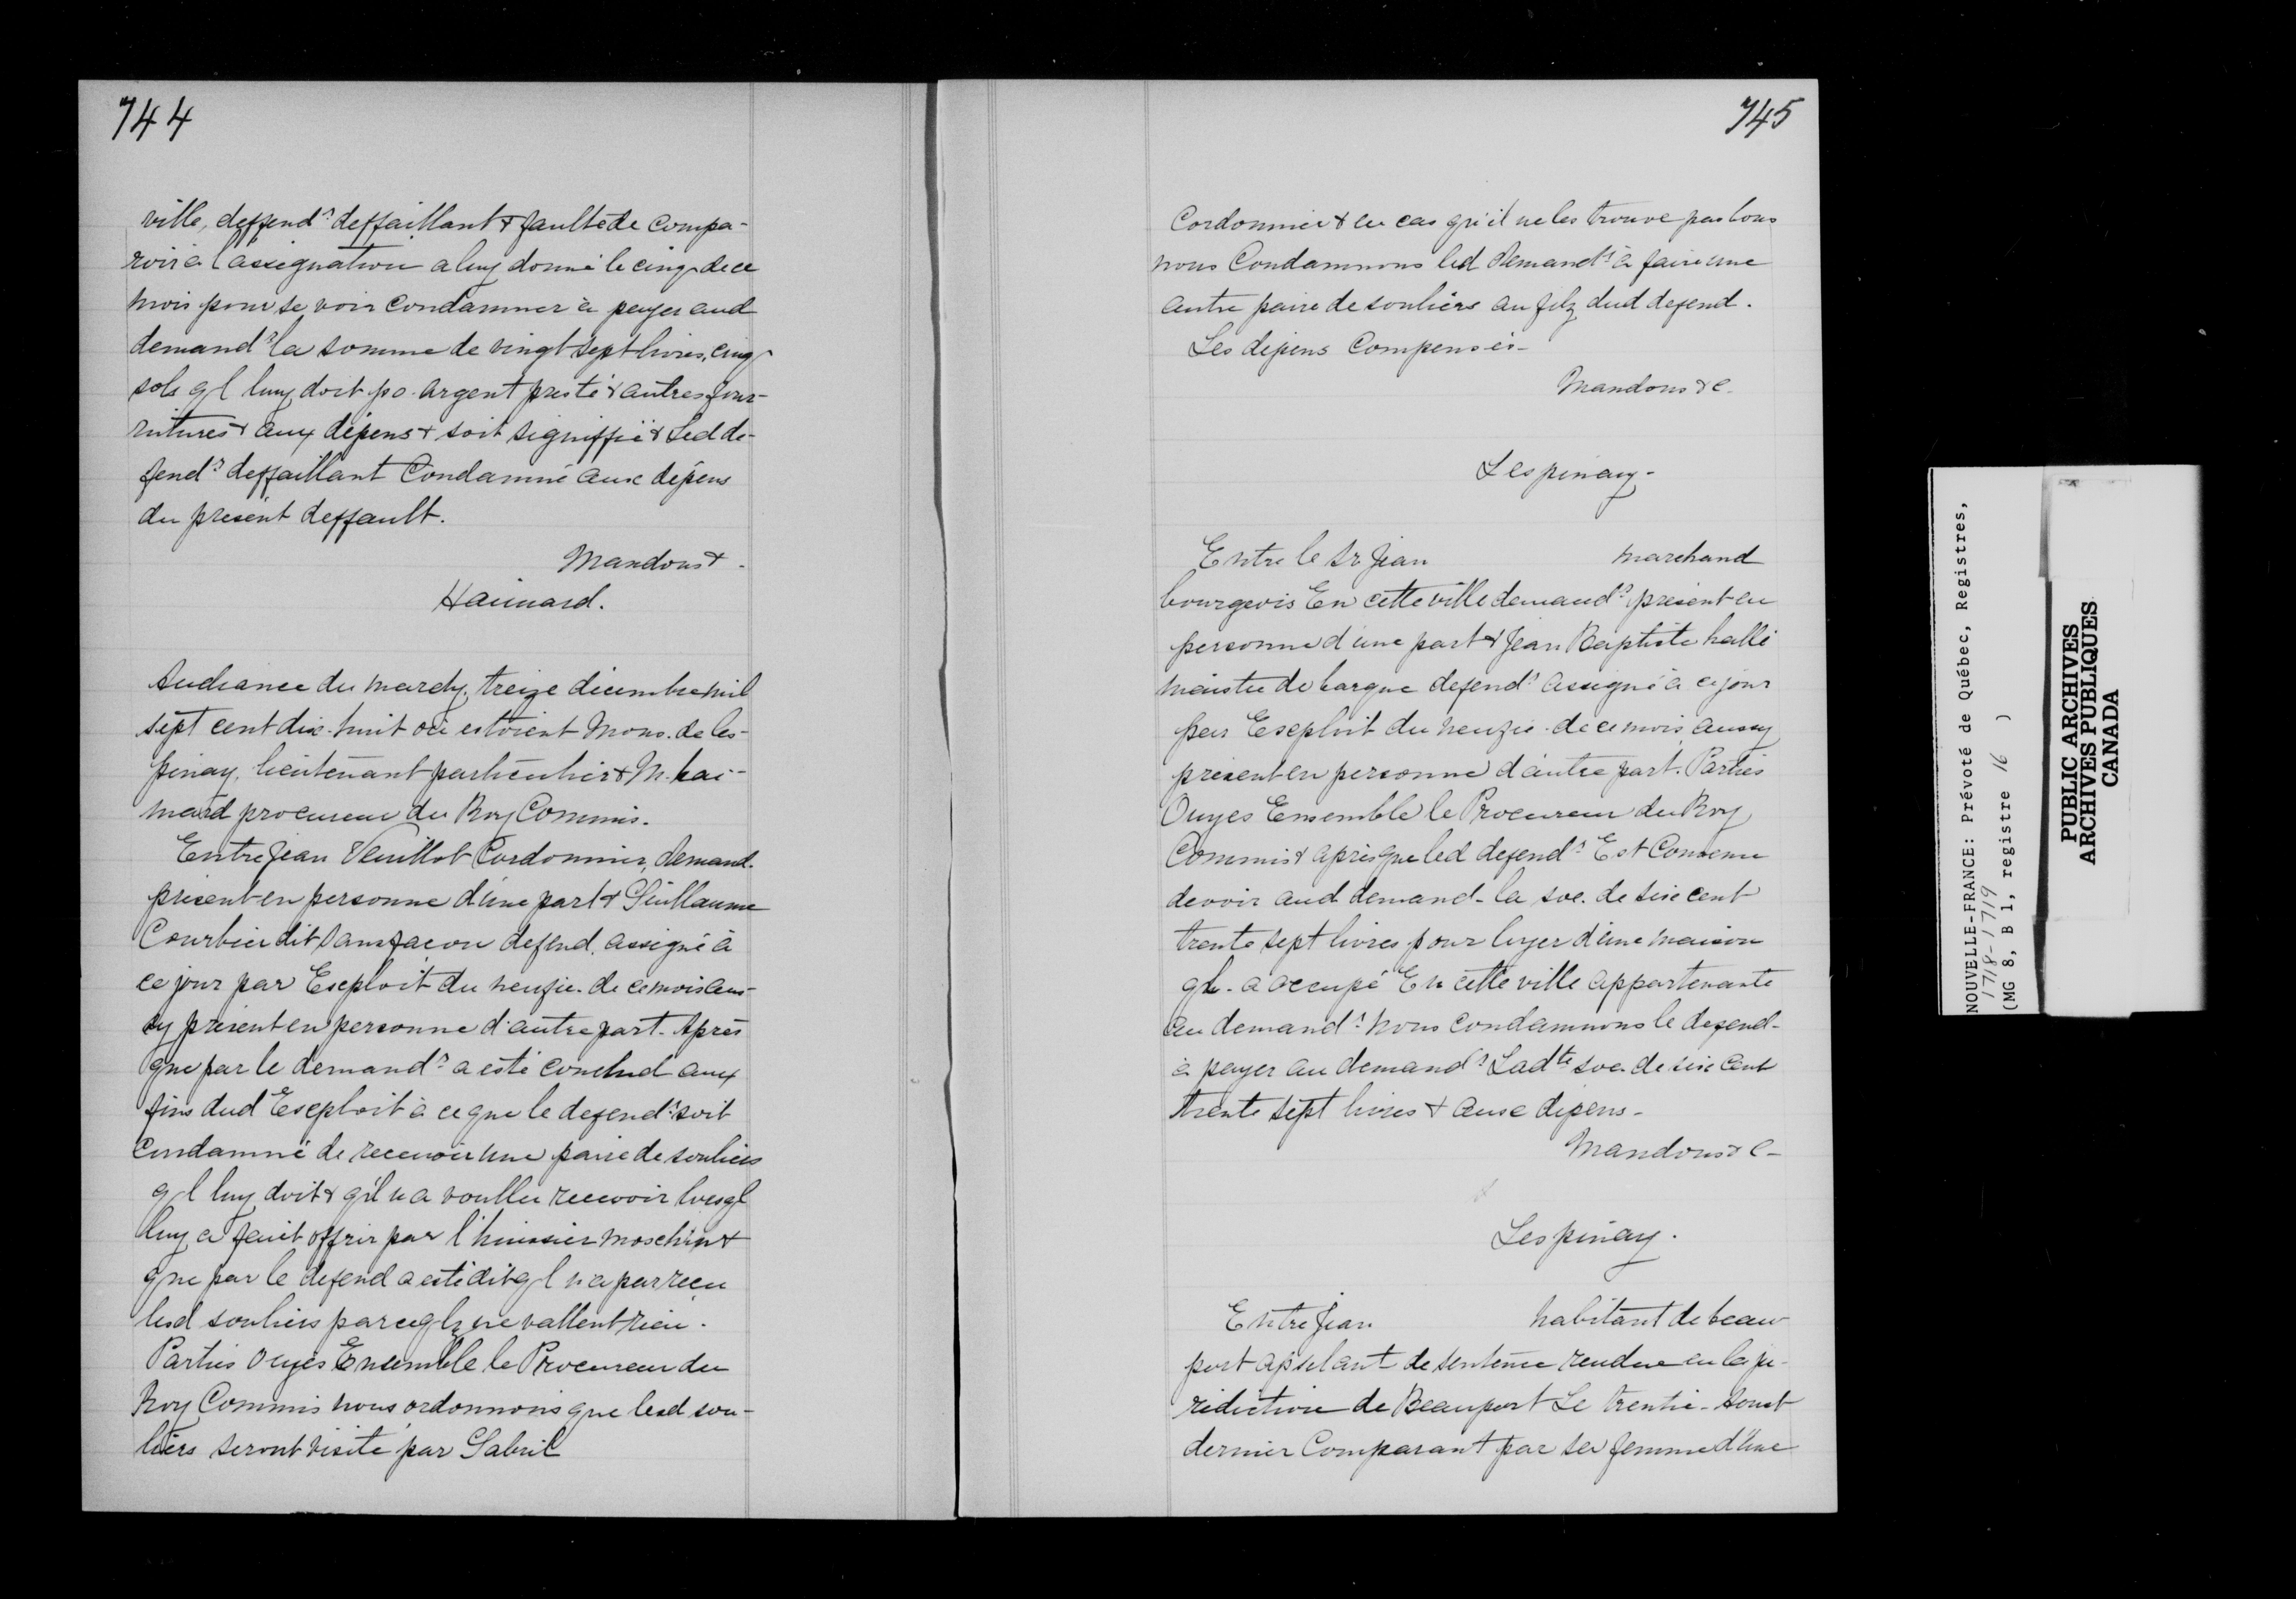 744
ville, deffendr deffaillant & faulte de compa-
roir à l'assignation a luy donné le cinq de ce
mois pour se voir condamner à payer aud
demandr la somme de vingt sept livres, cinq
sols ql luy doit po. argent presté & autres four-
nitures & aux dépens & soit signiffié & Led de-
fendr deffaillant Condamné aux dépens
du présent deffault.
Mandons &
Haimard.
Audiance du mardy treize décembre mil
sept cent dix-huit où estoient Mons. de les-
pinay, lieutenant particulier & M. hai-
mard procureur du Roy Commis.
Entre Jean Cordonnier, demand.
présent en personne d'une part & Guillaume
Courbier dit Sansfacon defend. assigné à
ce jour par Exploit du neufie. de ce mois aus-
sy présent en personne d'autre part. Après
que par le demandr a esté conclud aux
fins dud Exploit à ce que le defendr soit
condamné de recevoir une paire de souliers
ql luy doit & qu'il n'a voullu recevoir lorsql
luy a fait offrir par l'huissier moschin &
que par le defend a esté dit ql n'a pas reçu
lesd souliers parceqls ne vallent rien.
Parties ouyes Ensemble le Procureur du
Roy Commis nous ordonnons que lesd sou-
liers seront visité par Gabriel
745
Cordonnier & en cas qu'il ne les trouve pas bons
nous Condamnons led demandr à faire une
autre paire de souliers au filz dud defend.
Les dépens Compensés -
Mandons & c.
Lespinay -
Entre le Sr Jean marchand
bourgeois En cette ville demandr présent en
personne d'une part & Jean Baptiste hallé
maistre de barque defendr assigné à ce jour
par Exploit du neufie. de ce mois aussy
présent en personne d'autre part. Parties
Ouyes Ensemble le Procureur du Roy
Commis & après que led defendr Est Convenu
devoir aud demand. la soe. de six cent
trente sept livres pour loyer d'une maison
ql. a occupé En cette ville appartenante
au demandr nous condamnons le defend-
à payer au demandr Ladte soe. de six Cent
trente sept livres & aux dépens -
Mandons & c -
Lespinay.
Entre Jean habitant de beau
port appelant de sentence rendue en la ju-
ridiction de Beauport Le trentie - aoust
dernier Comparant par sa femme d'une
NOUVELLE-FRANCE: Prévoté de Québec, Registres,
1718-1719
(MG 8, B 1, registre 16 )
PUBLIC ARCHIVES
ARCHIVES PUBLIQUES
CANADA